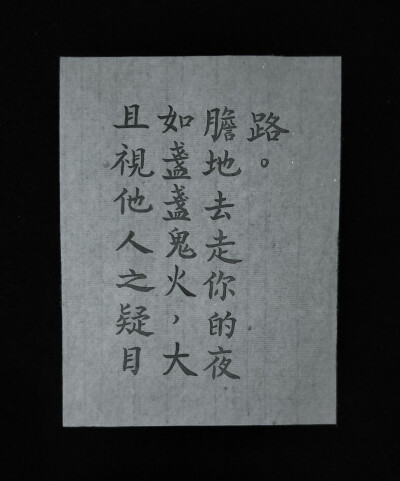 且視他人之疑目
如盞盞鬼火，大
膽地去走你的夜
路。